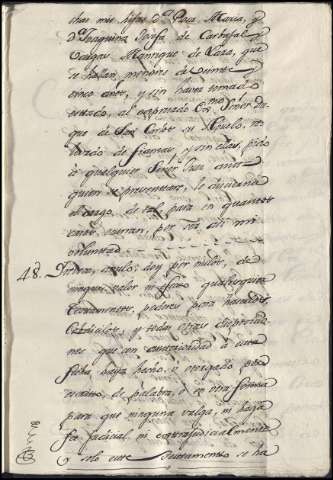 chas mis hijas D.ª Paca Maria, y
D.ª Joaquina Josefa de Carbajal
Vargas Manrique de Lara, que
se hallan menores de veinte
cinco años, y sin haver tomado
estado, al expresado Señor Du-
que de San Carlos su Abuelo, re-
levado de fianzas, y sin ellas, pido
à qualquier Señor Juez ante
quien se presentare, le discierna
el cargo de tal para en quanto
ocurran, por ser asi mi
voluntad.
48. Revoco, anulo, doy por nulos, de
ningun valor ni efecto qualesquiera
testamentos, poderes para hacerlos,
Cobdicilos, y todas otras disposicio-
nes que con anterioridad à esta
fecha haya hecho, ù otorgado por
escrito, de palabra, ò en otra forma
para que ninguna valga, ni haga
fee judicial, ni extrajudicialmente
y solo este Testamento se ha